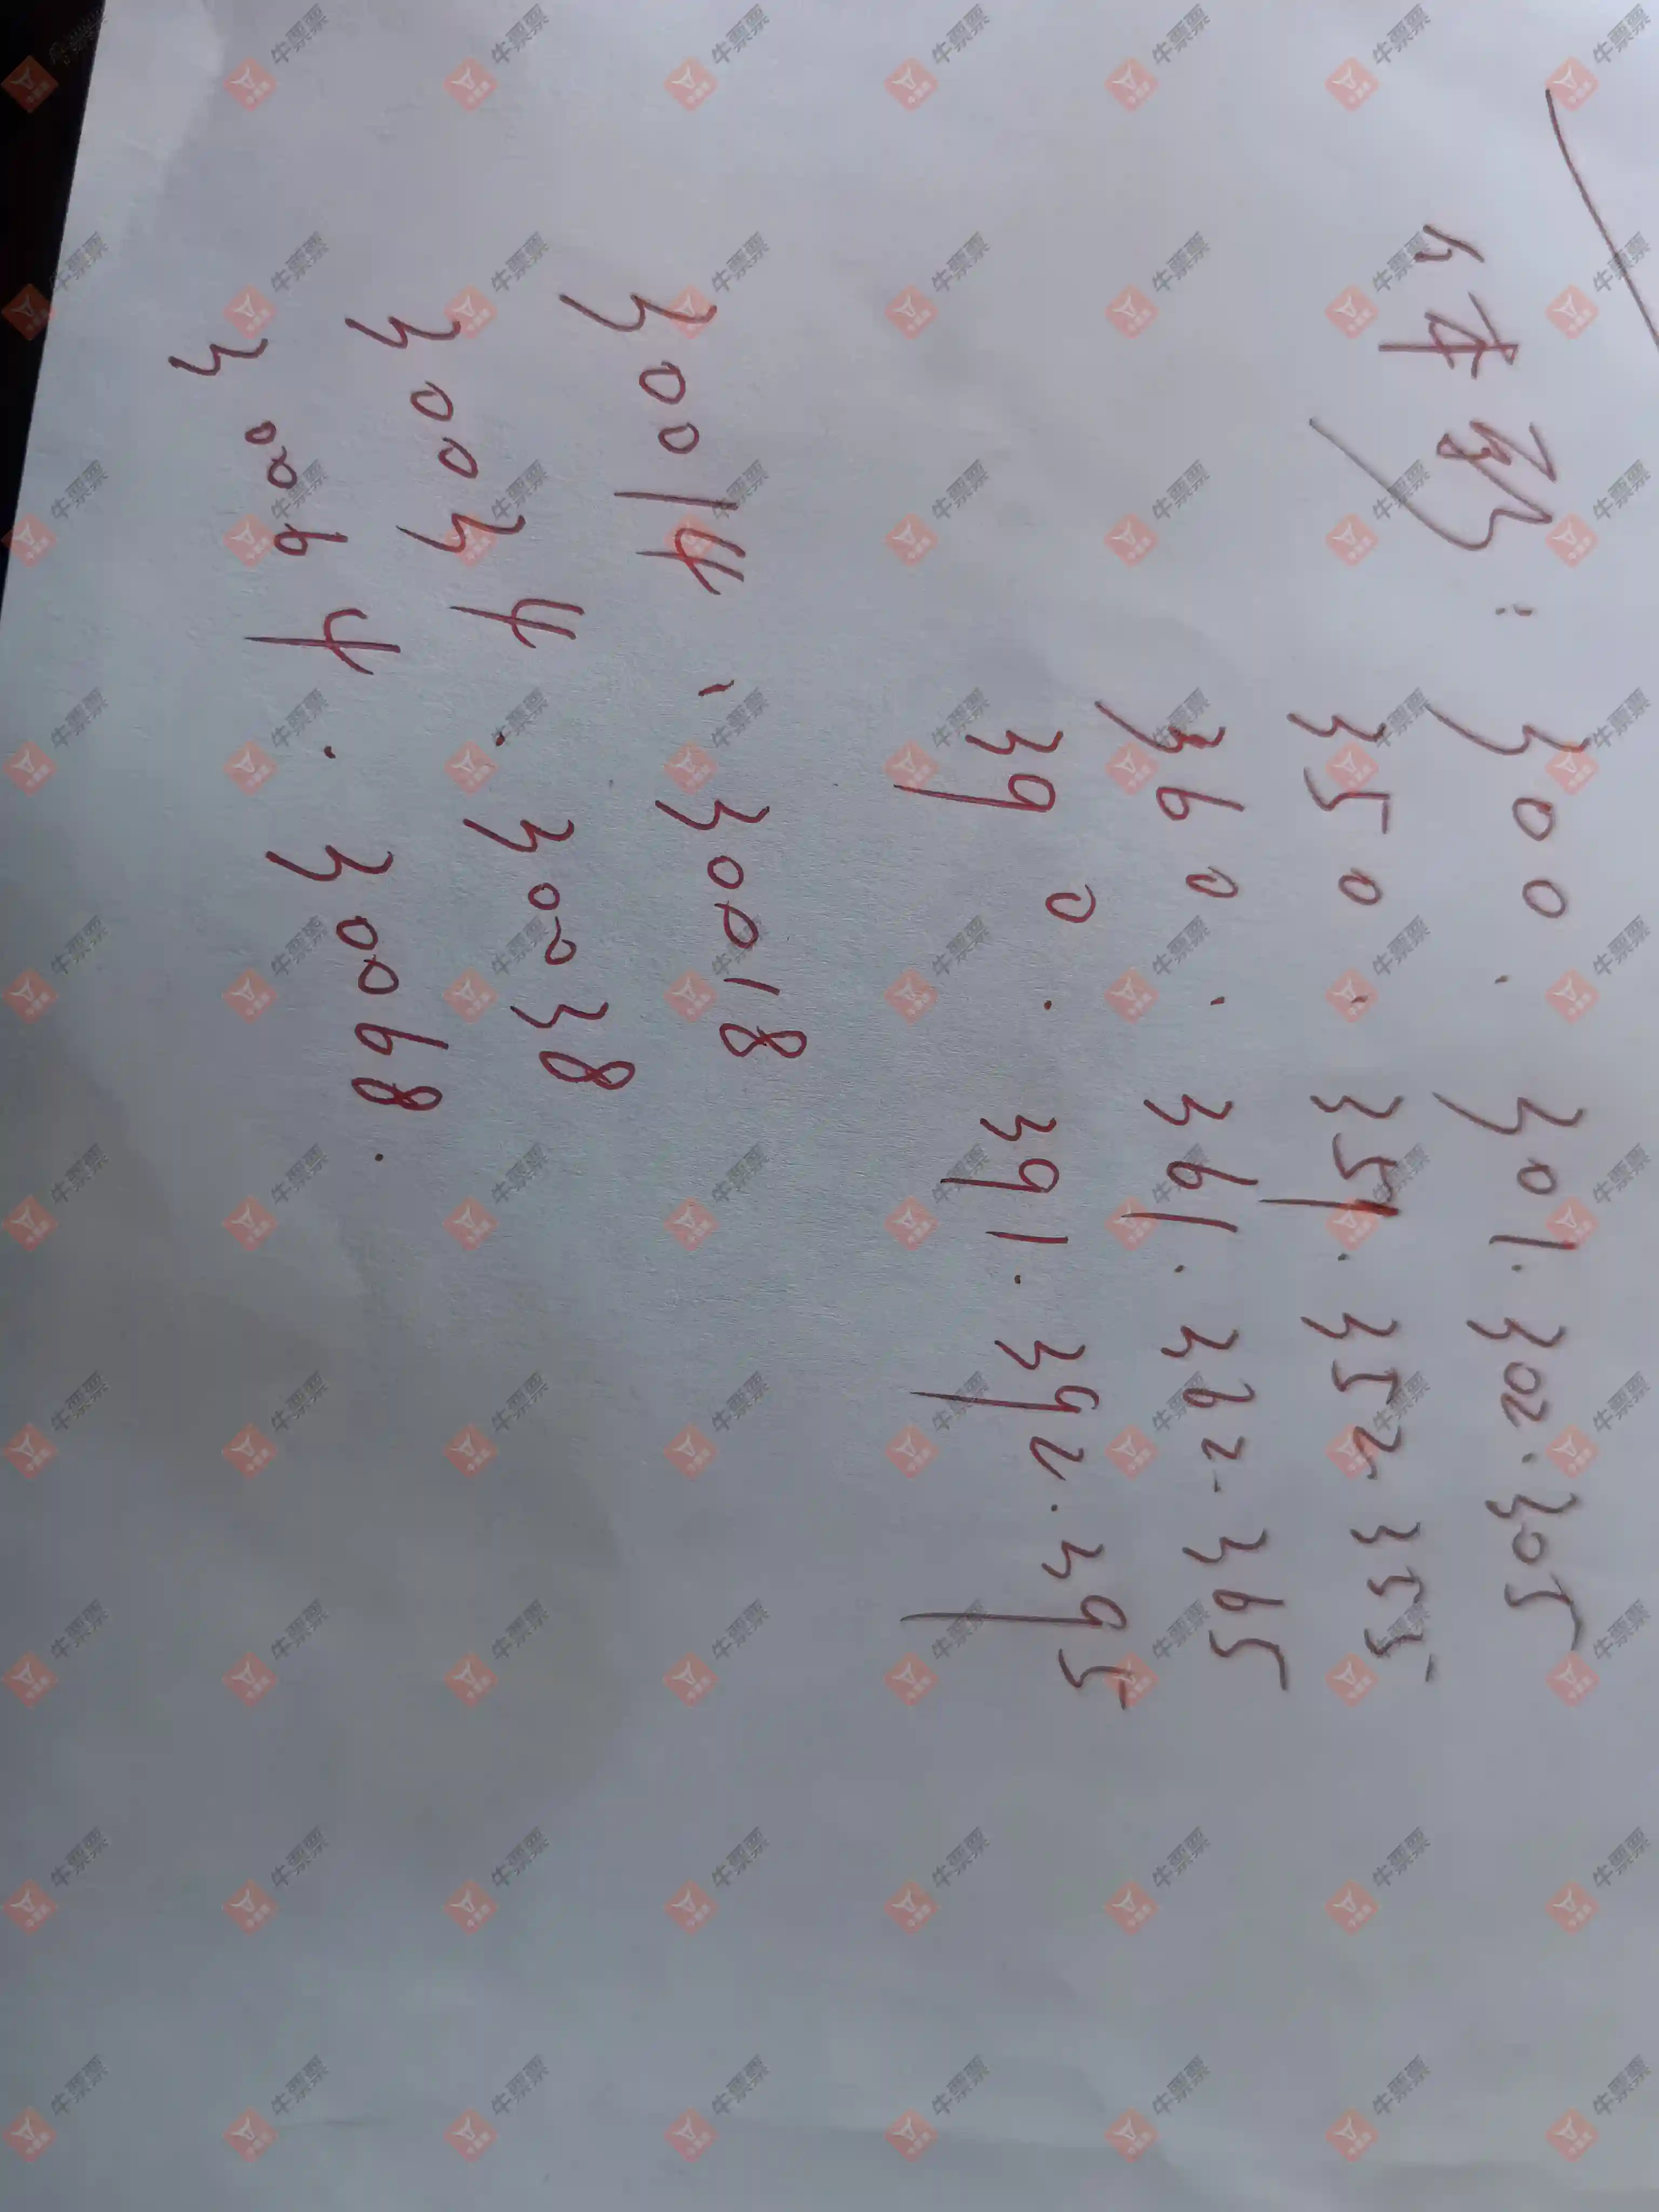 : 300 . 301. 302. 305
350 . 351. 352. 355
360 . 361. 362. 365
390 . 391. 392. 395
30014 、 30018
30034 . 30038
30064 . 30068.
牛票票